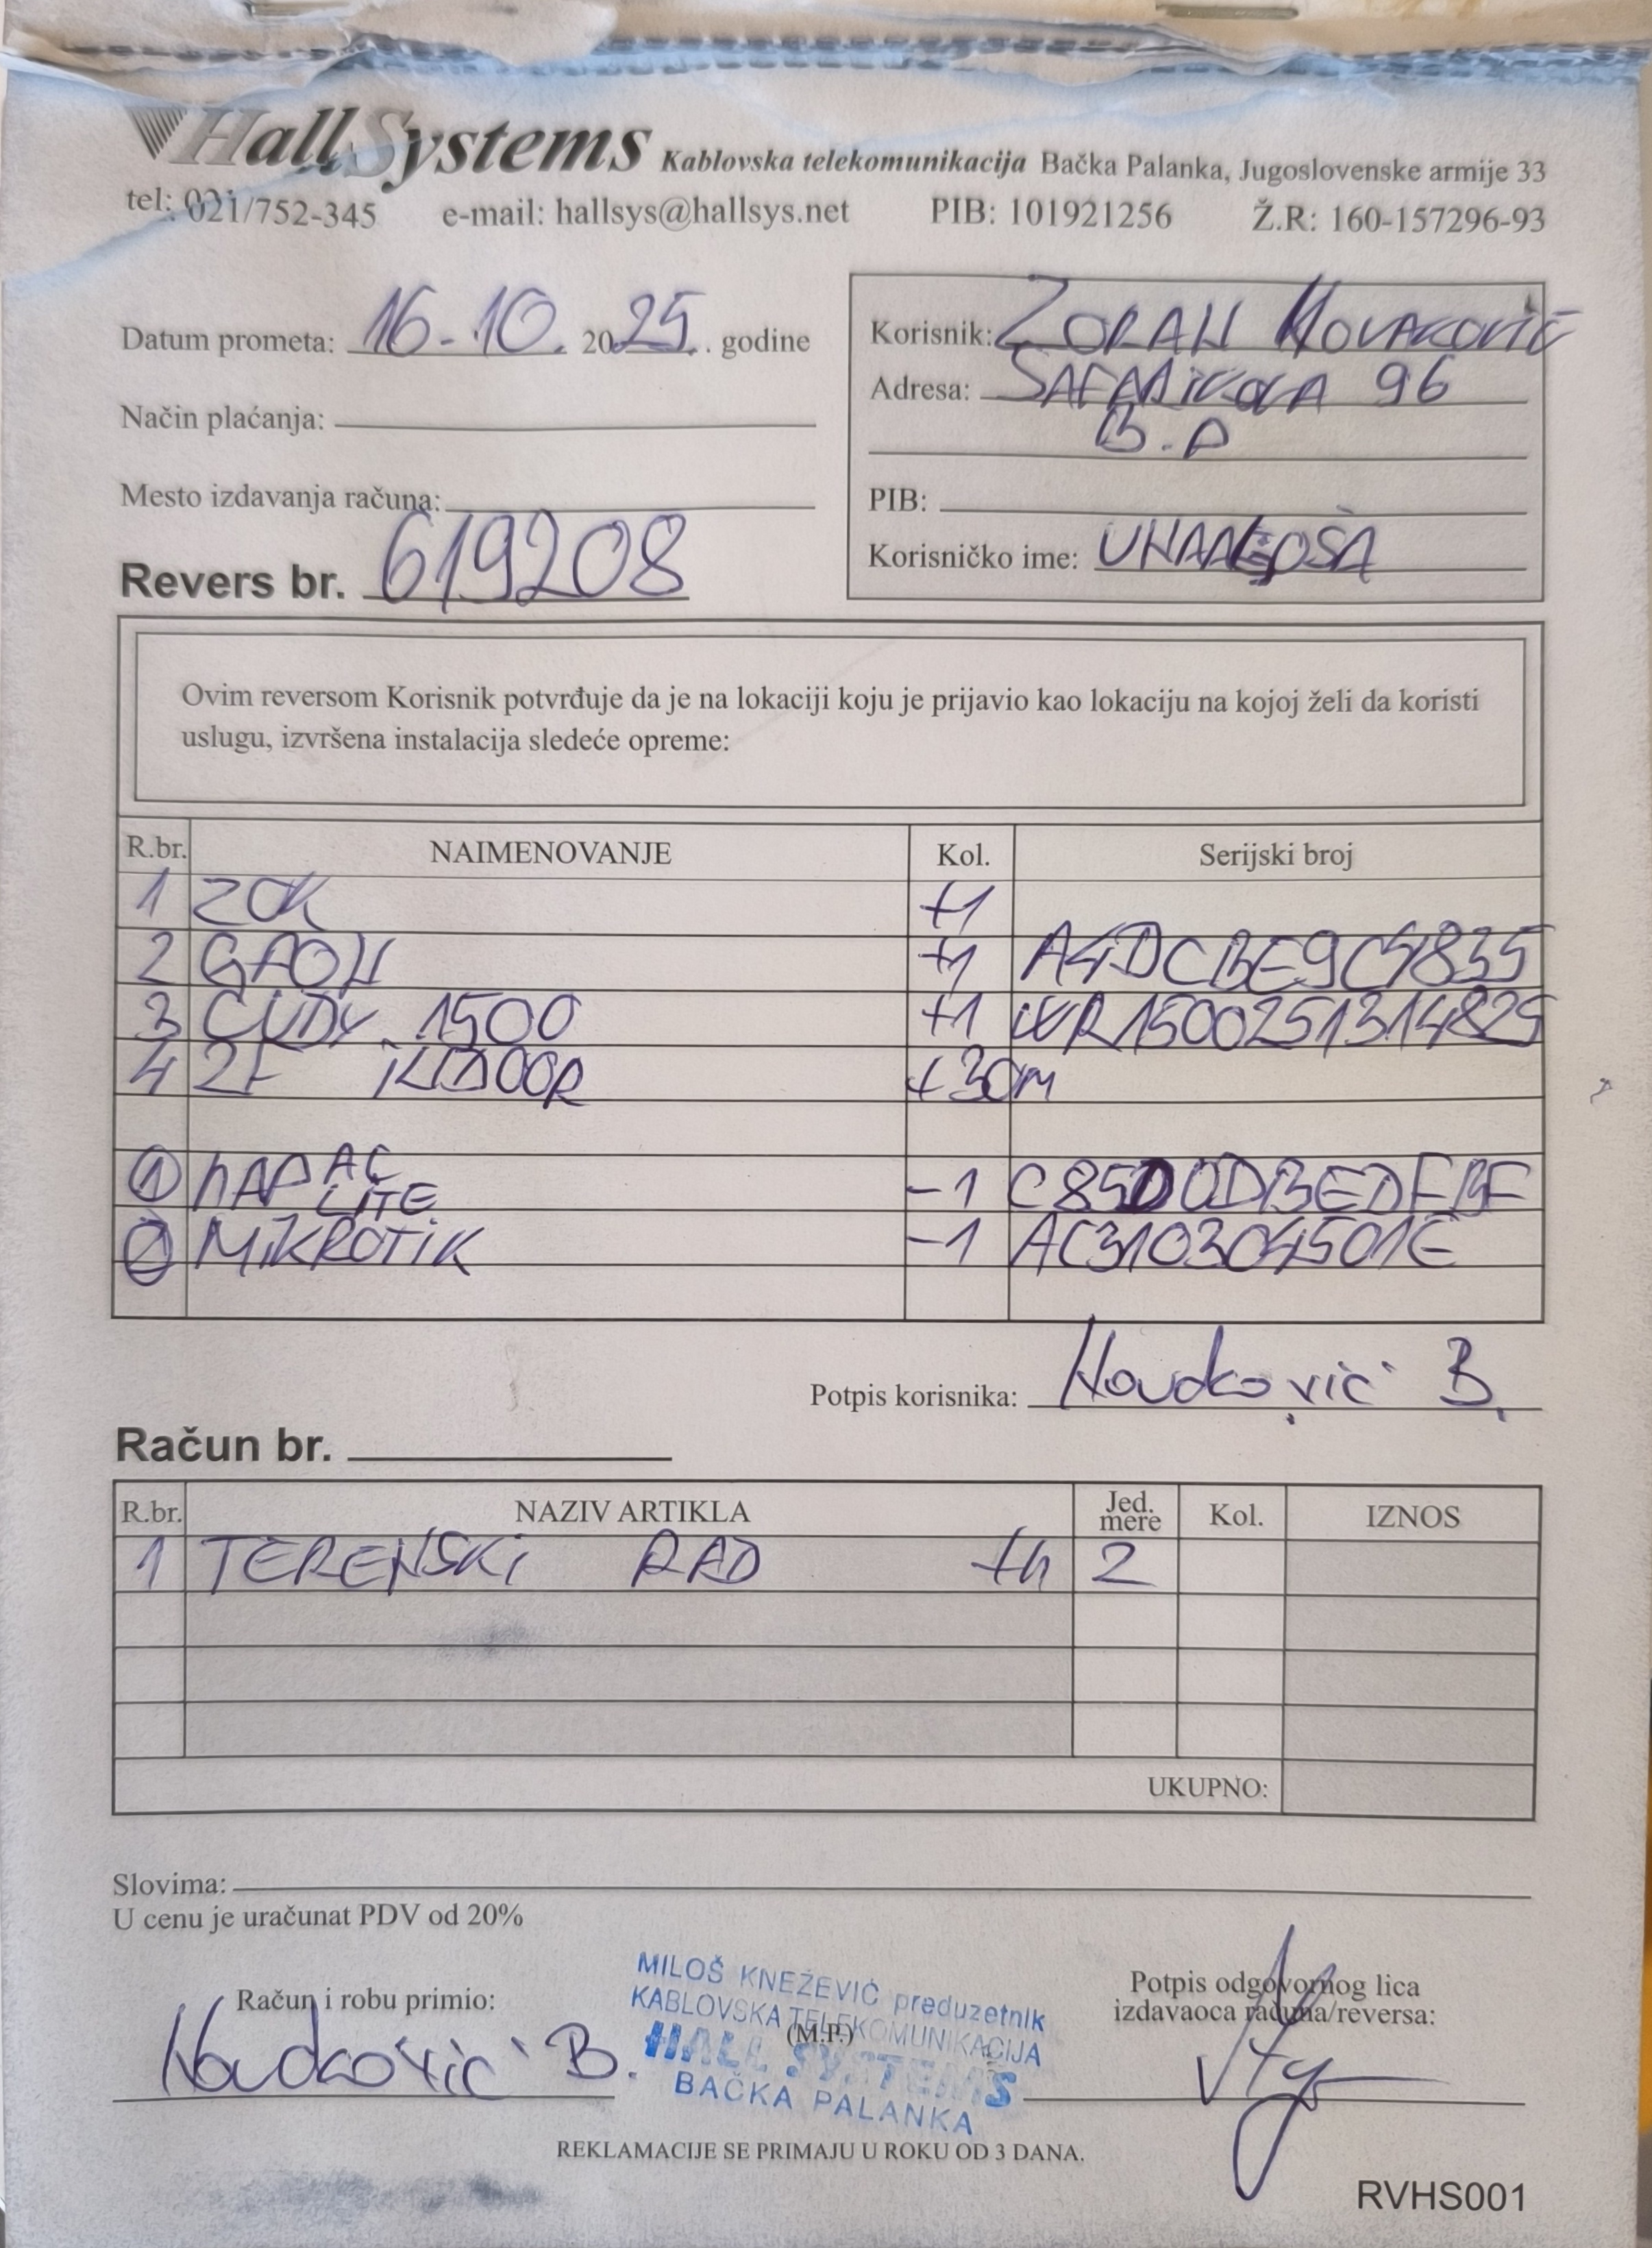 HallSystems Kablovska telekomunikacija Bačka Palanka, Jugoslovenske armije 33
tel: 021/752-345 e-mail: hallsys@hallsys.net PIB: 101921256 Ž.R: 160-157296-93
Datum prometa: 16-10. 2025. godine
Način plaćanja:
Mesto izdavanja računa:
Revers br. 619208
Korisnik: ZORAN NOVAKOVIĆ
Adresa: ŠAFARIKOVA 96
B.P
PIB:
Korisničko ime:
Ovim reversom Korisnik potvrđuje da je na lokaciji koju je prijavio kao lokaciju na kojoj želi da koristi
uslugu, izvršena instalacija sledeće opreme:
R.br. NAIMENOVANJE Kol. Serijski broj
1 ZOK +1
2 GPON +1 A4DCBE9C4835
3 CUDY 1500 +1 WR1500251314825
4 2F INDOOR +30m
1 hAP AC LITE -1 C85D0DBEDFBF
2 MIKROTIK -1 AC310304501E
Potpis korisnika: Novaković B.
Račun br.
R.br. NAZIV ARTIKLA Jed. mere Kol. IZNOS
1 TERENSKI RAD +h 2
UKUPNO:
Slovima:
U cenu je uračunat PDV od 20%
Račun i robu primio:
Novaković B.
MILOŠ KNEŽEVIĆ preduzetnik
KABLOVSKA TELEKOMUNIKACIJA
(M.P.)
HALL SYSTEMS
BAČKA PALANKA
Potpis odgovornog lica
izdavaoca računa/reversa:
REKLAMACIJE SE PRIMAJU U ROKU OD 3 DANA.
RVHS001